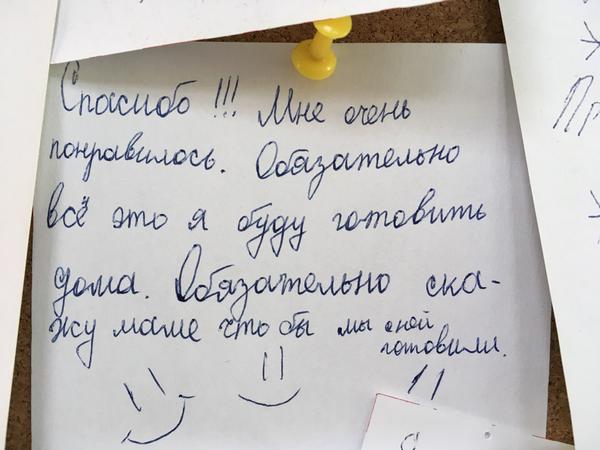 Спасибо !!! Мне очень
понравилось. Обязательно
всё это я буду готовить
дома. Обязательно ска-
жу маме что бы мы сней
готовили.
Пр